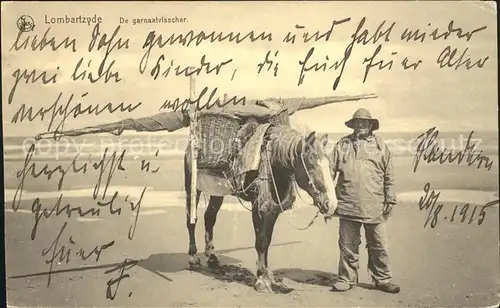 Nels
Lombartzyde De garnaatvisscher.
lieben Sohn gewonnen und habt wieder
zwei liebe Kinder, die Euch für Euer Alter
verschönen wollen
herzlichst u.
getreulich
für
8. 1915